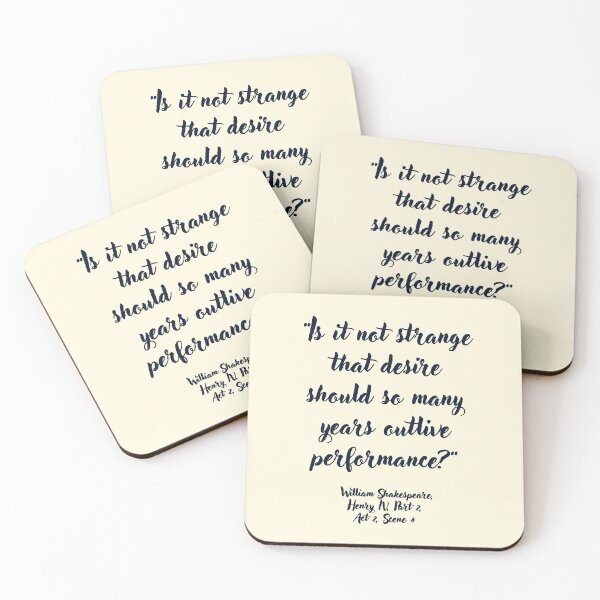 "Is it not strange
that desire
should so many
"Is it not strange
that desire
should so many
years outlive
performance?"
"Is it not strange
that desire
should so many
years outlive
performance
William
Henry, IV
Act 2,
"Is it not strange
that desire
should so many
years outlive
performance?"
William Shakespeare,
Henry, IV Part 2,
Act 2, Scene 4